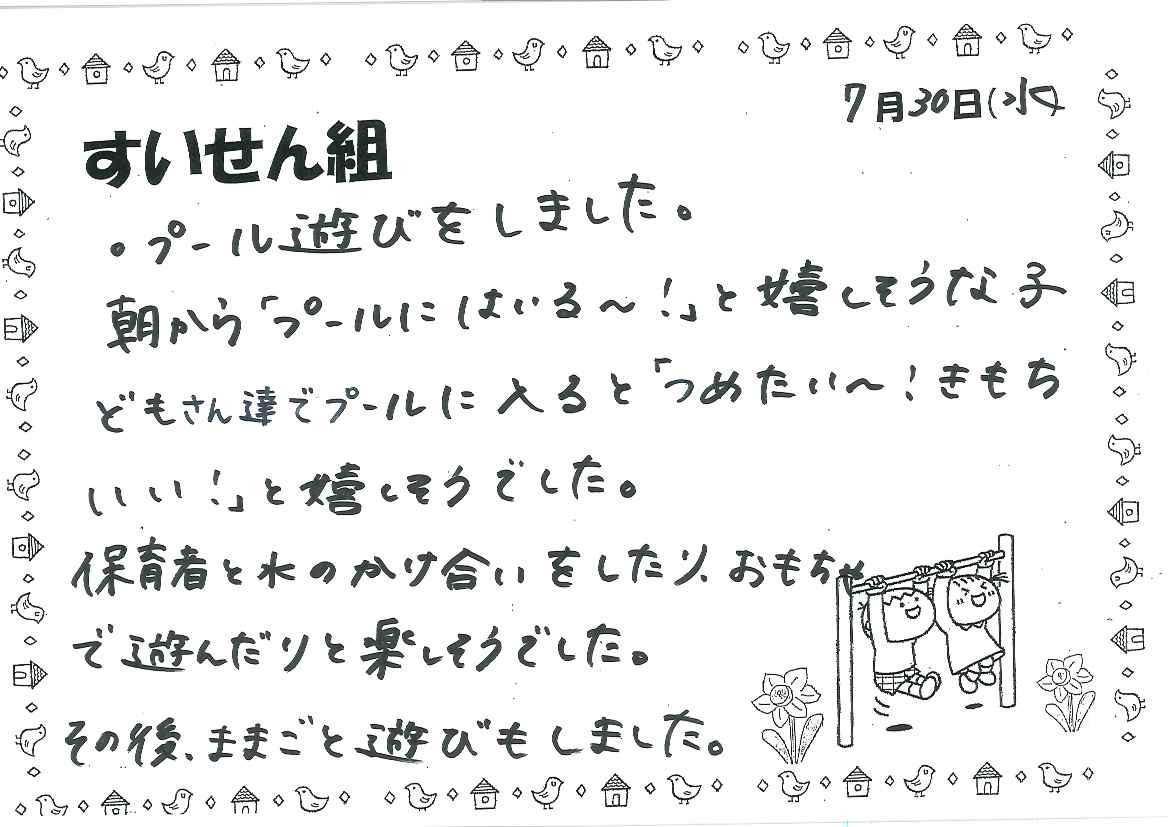 7月30日(水)
すいせん組
。プール遊びをしました。
朝から「プールにはいる～!」と嬉しそうな子
どもさん達でプールに入ると「つめたい～!きもち
いい!」と嬉しそうでした。
保育者と水のかけ合いをしたり、おもちゃ
で遊んだりと楽しそうでした。
その後、ままごと遊びもしました。